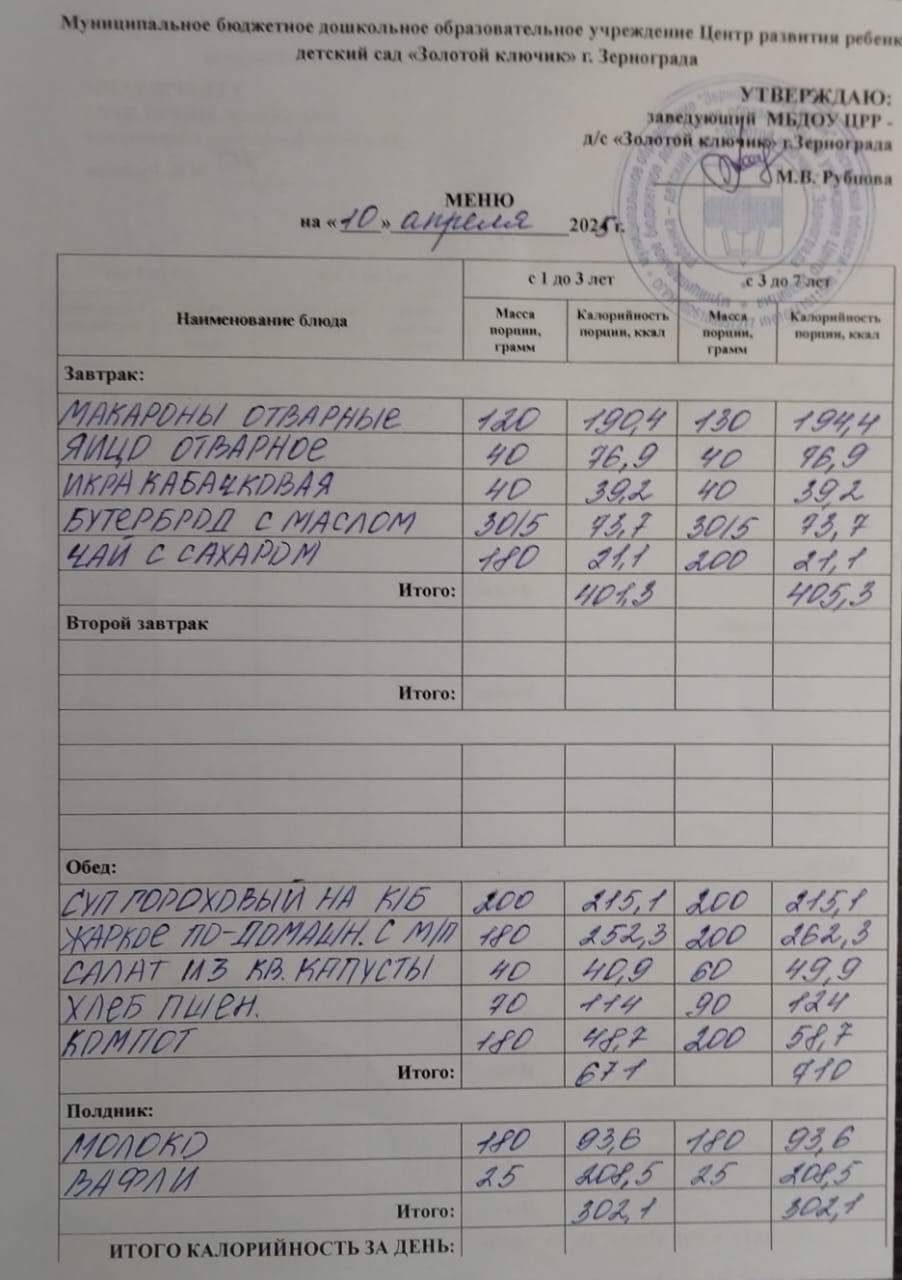 Муниципальное бюджетное дошкольное образовательное учреждение Центр развития ребенк
детский сад «Золотой ключик» г. Зернограда
УТВЕРЖДАЮ:
заведующий МБДОУ ЦРР -
д/с «Золотой ключик» г.Зернограда
М.В. Рубцова
МЕНЮ
на «10» апреля 2025 г.
Наименование блюда с 1 до 3 лет с 3 до 7 лет
Масса порции, грамм Калорийность порции, ккал Масса порции, грамм Калорийность порции, ккал
Завтрак:
МАКАРОНЫ ОТВАРНЫЕ 120 190,4 130 194,4
ЯЙЦО ОТВАРНОЕ 40 76,9 40 76,9
ИКРА КАБАЧКОВАЯ 40 39,2 40 39,2
БУТЕРБРОД С МАСЛОМ 30/5 73,7 30/5 73,7
ЧАЙ С САХАРОМ 180 21,1 200 21,1
Итого: 401,3 405,3
Второй завтрак
Итого:
Обед:
СУП ГОРОХОВЫЙ НА К/Б 200 215,1 200 215,1
ЖАРКОЕ ПО-ДОМАШН. С М/П 180 252,3 200 262,3
САЛАТ ИЗ КВ. КАПУСТЫ 40 40,9 60 49,9
ХЛЕБ ПШЕН. 70 114 90 124
КОМПОТ 180 48,7 200 58,7
Итого: 671 710
Полдник:
МОЛОКО 180 93,6 180 93,6
ВАФЛИ 25 208,5 25 208,5
Итого: 302,1 302,1
ИТОГО КАЛОРИЙНОСТЬ ЗА ДЕНЬ: